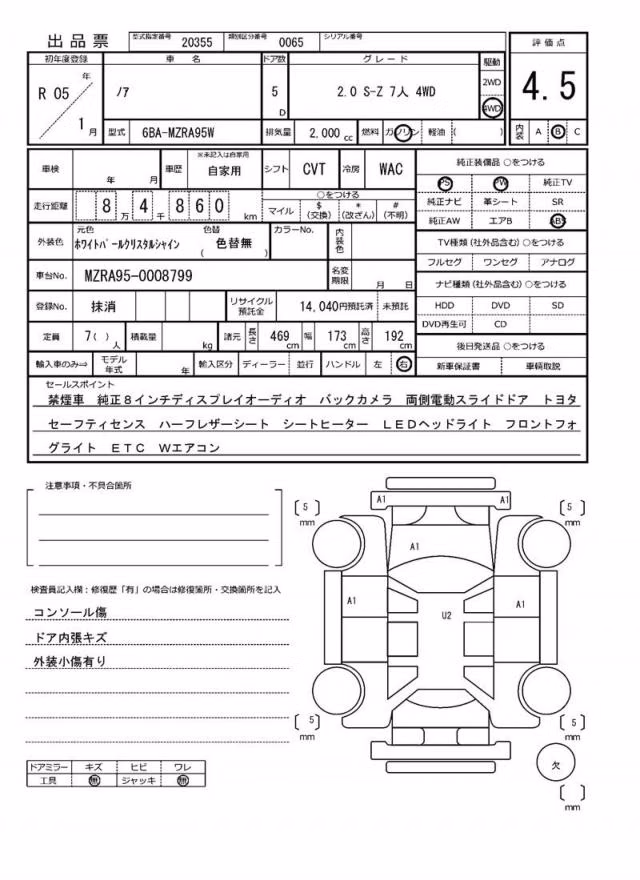 出品票 型式指定番号 20355 類別区分番号 0065 シリアル番号
初年度登録 車名 ドア数 グレード 駆動 評価点
R 05 年 1 月 ノア 5 D 2.0 S-Z 7人 4WD 2WD 4WD 4.5
型式 6BA-MZRA95W 排気量 2,000 cc 燃料 ガソリン 軽油 ( ) 内装 A B C
車検 年 月 車歴 ※未記入は自家用 自家用 シフト CVT 冷房 WAC
走行距離 8 万 4 千 8 6 0 km ○をつける マイル $ (交換) * (改ざん) # (不明)
外装色 元色 ホワイトパールクリスタルシャイン 色替 ( 色替無 ) カラーNo. 内装色
車台No. MZRA95-0008799 名変期限 月 日
登録No. 抹消 リサイクル預託金 14,040円預託済 未預託
定員 7( ) 人 積載量 kg 諸元 長さ 469 cm 幅 173 cm 高さ 192 cm
輸入車のみ⇒ モデル年式 年 輸入区分 ディーラー 並行 ハンドル 左 右
純正装備品 ○をつける
PS PW 純正TV
純正ナビ 革シート SR
純正AW エアB ABS
TV種類 (社外品含む) ○をつける
フルセグ ワンセグ アナログ
ナビ種類 (社外品含む) ○をつける
HDD DVD SD
DVD再生可 CD
後日発送品 ○をつける
新車保証書 車輌取説
セールスポイント
禁煙車 純正８インチディスプレイオーディオ バックカメラ 両側電動スライドドア トヨタ
セーフティセンス ハーフレザーシート シートヒーター ＬＥＤヘッドライト フロントフォ
グライト ＥＴＣ Ｗエアコン
注意事項・不具合箇所
検査員記入欄：修復歴「有」の場合は修復箇所・交換箇所を記入
コンソール傷
ドア内張キズ
外装小傷有り
ドアミラー キズ ヒビ ワレ
工具 無 ジャッキ 無
5 mm A1 A1 5 mm
A1
A1 U2 A1
5 mm 5 mm
欠
mm